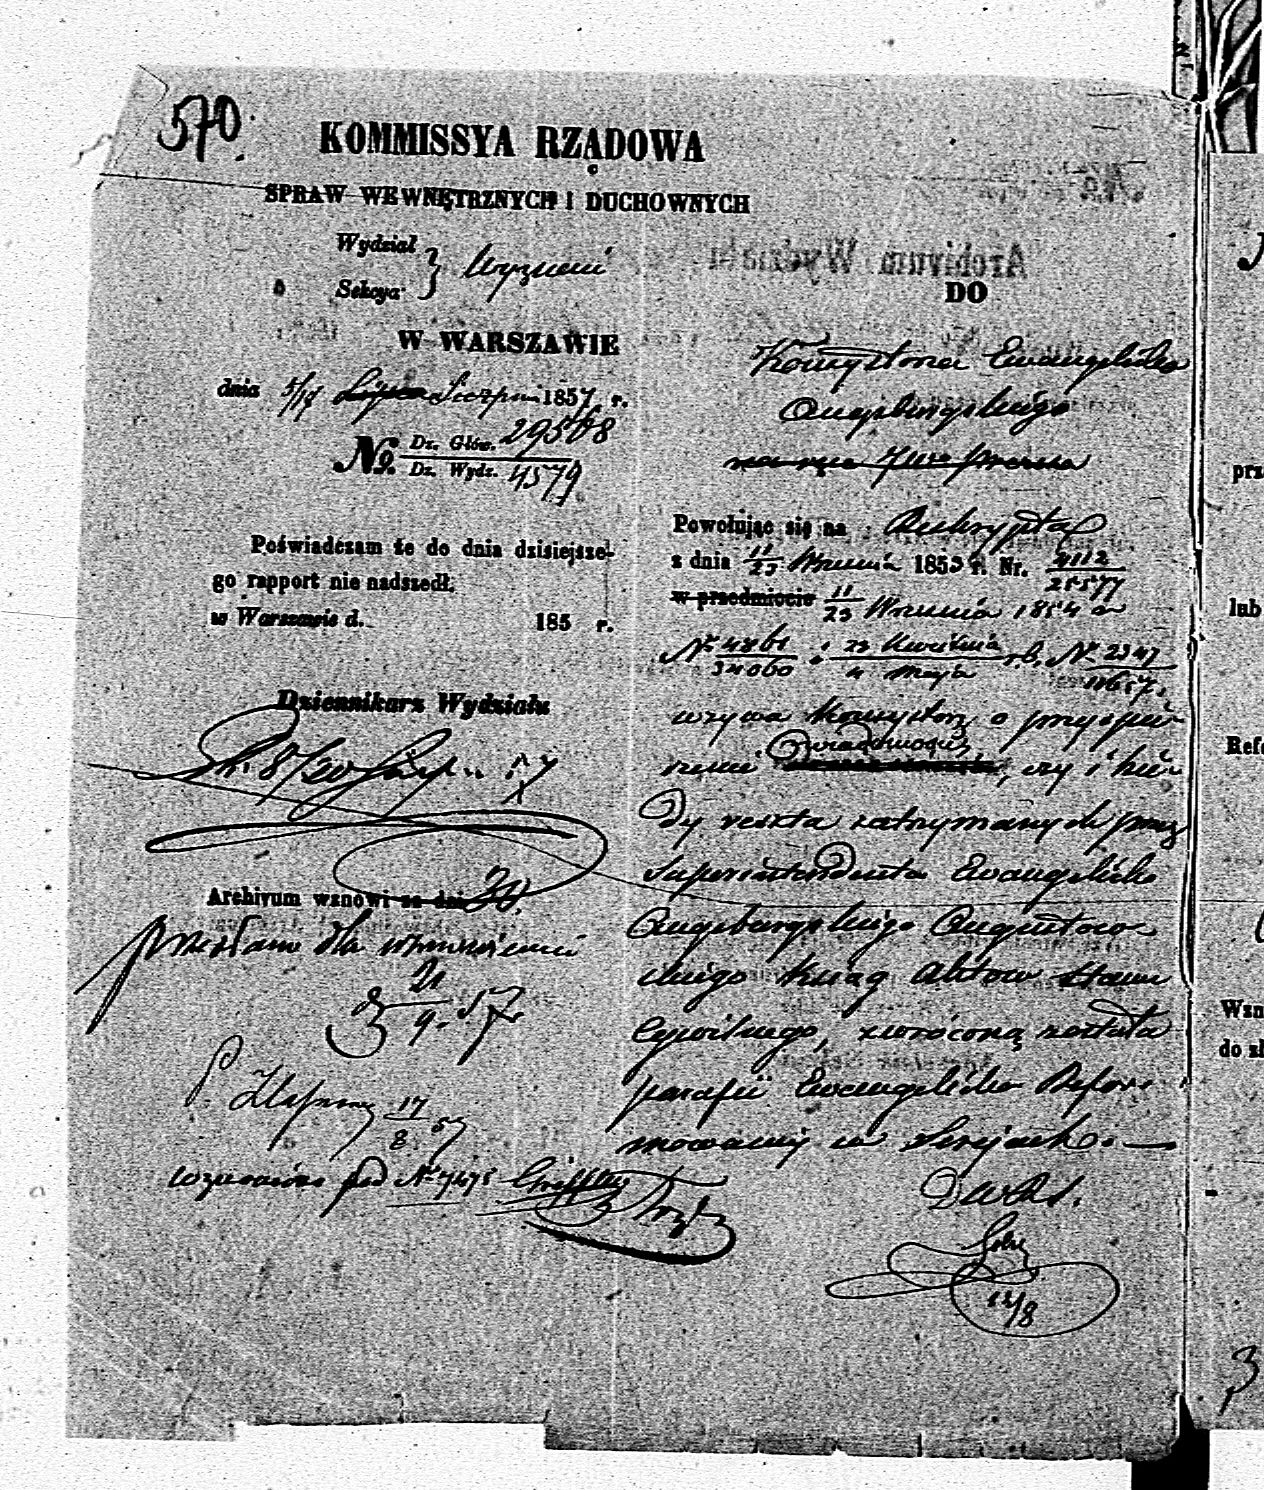 570.
KOMMISSYA RZĄDOWA
SPRAW WEWNĘTRZNYCH I DUCHOWNYCH
Wydział
Sekcya
Wyznań
W WARSZAWIE
dnia 5/17 Lipca Sierpnia 1857 r.
No. Dz. Głów. 29568
Dz. Wydz. 4579
Poświadczam że do dnia dzisiejsze-
go rapport nie nadszedł.
w Warszawie d. 185 r.
Dziennikarz Wydziału
8/20 57
Archivum wznowi za dni 30.
przesłano dla wznowienia
d 21/9 57
17/8 57
pod No 7475
Archivum Wydziału
DO
Konsystorza Ewangelicko
Augsburgskiego
na ręce Prezesa
Powołując się na Reskrypta
z dnia 11/23 Września 1853 r. Nr. 4112/25577
w przedmiocie 11/23 Września 1854 r
No 4861/34060 i 23 Kwietnia/4 Maja r.b. No 2347/11657.
wzywa Konsystorz o przyspie-
szenie wiadomości, czy i kie-
dy reszta zatrzymanych przez
Superintendenta Ewangelicko
Augsburgskiego Augustow-
skiego Ksiąg Aktów Stanu
Cywilnego, zwróconą została
parafii Ewangelicko Refor-
mowanej w Serejach. —
12/8
prz
lub
Refo
Wzn
do zł